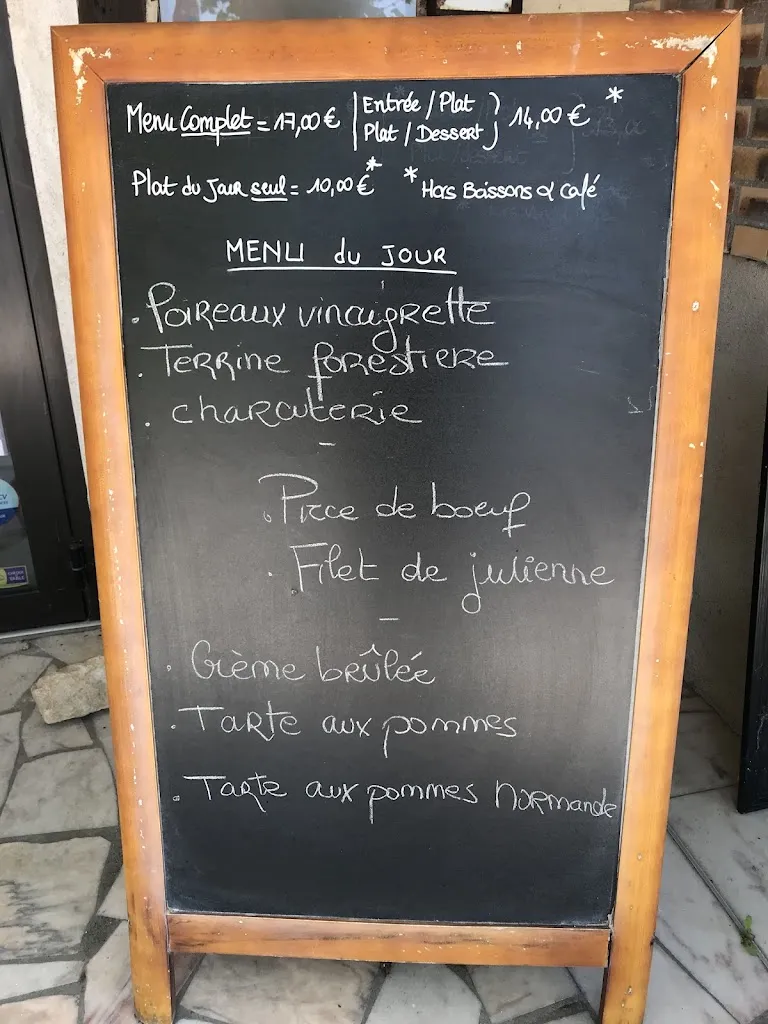 Menu Complet = 17,00 € | Entrée / Plat
Plat / Dessert } 14,00 € *
Plat du Jour seul = 10,00 € * * Hors Boissons & café
MENU du JOUR
. Poireaux vinaigrette
. Terrine forestiere
. charcuterie
–
. Piece de boeuf
. Filet de julienne
–
. Crème brûlée
. Tarte aux pommes
. Tarte aux pommes normande